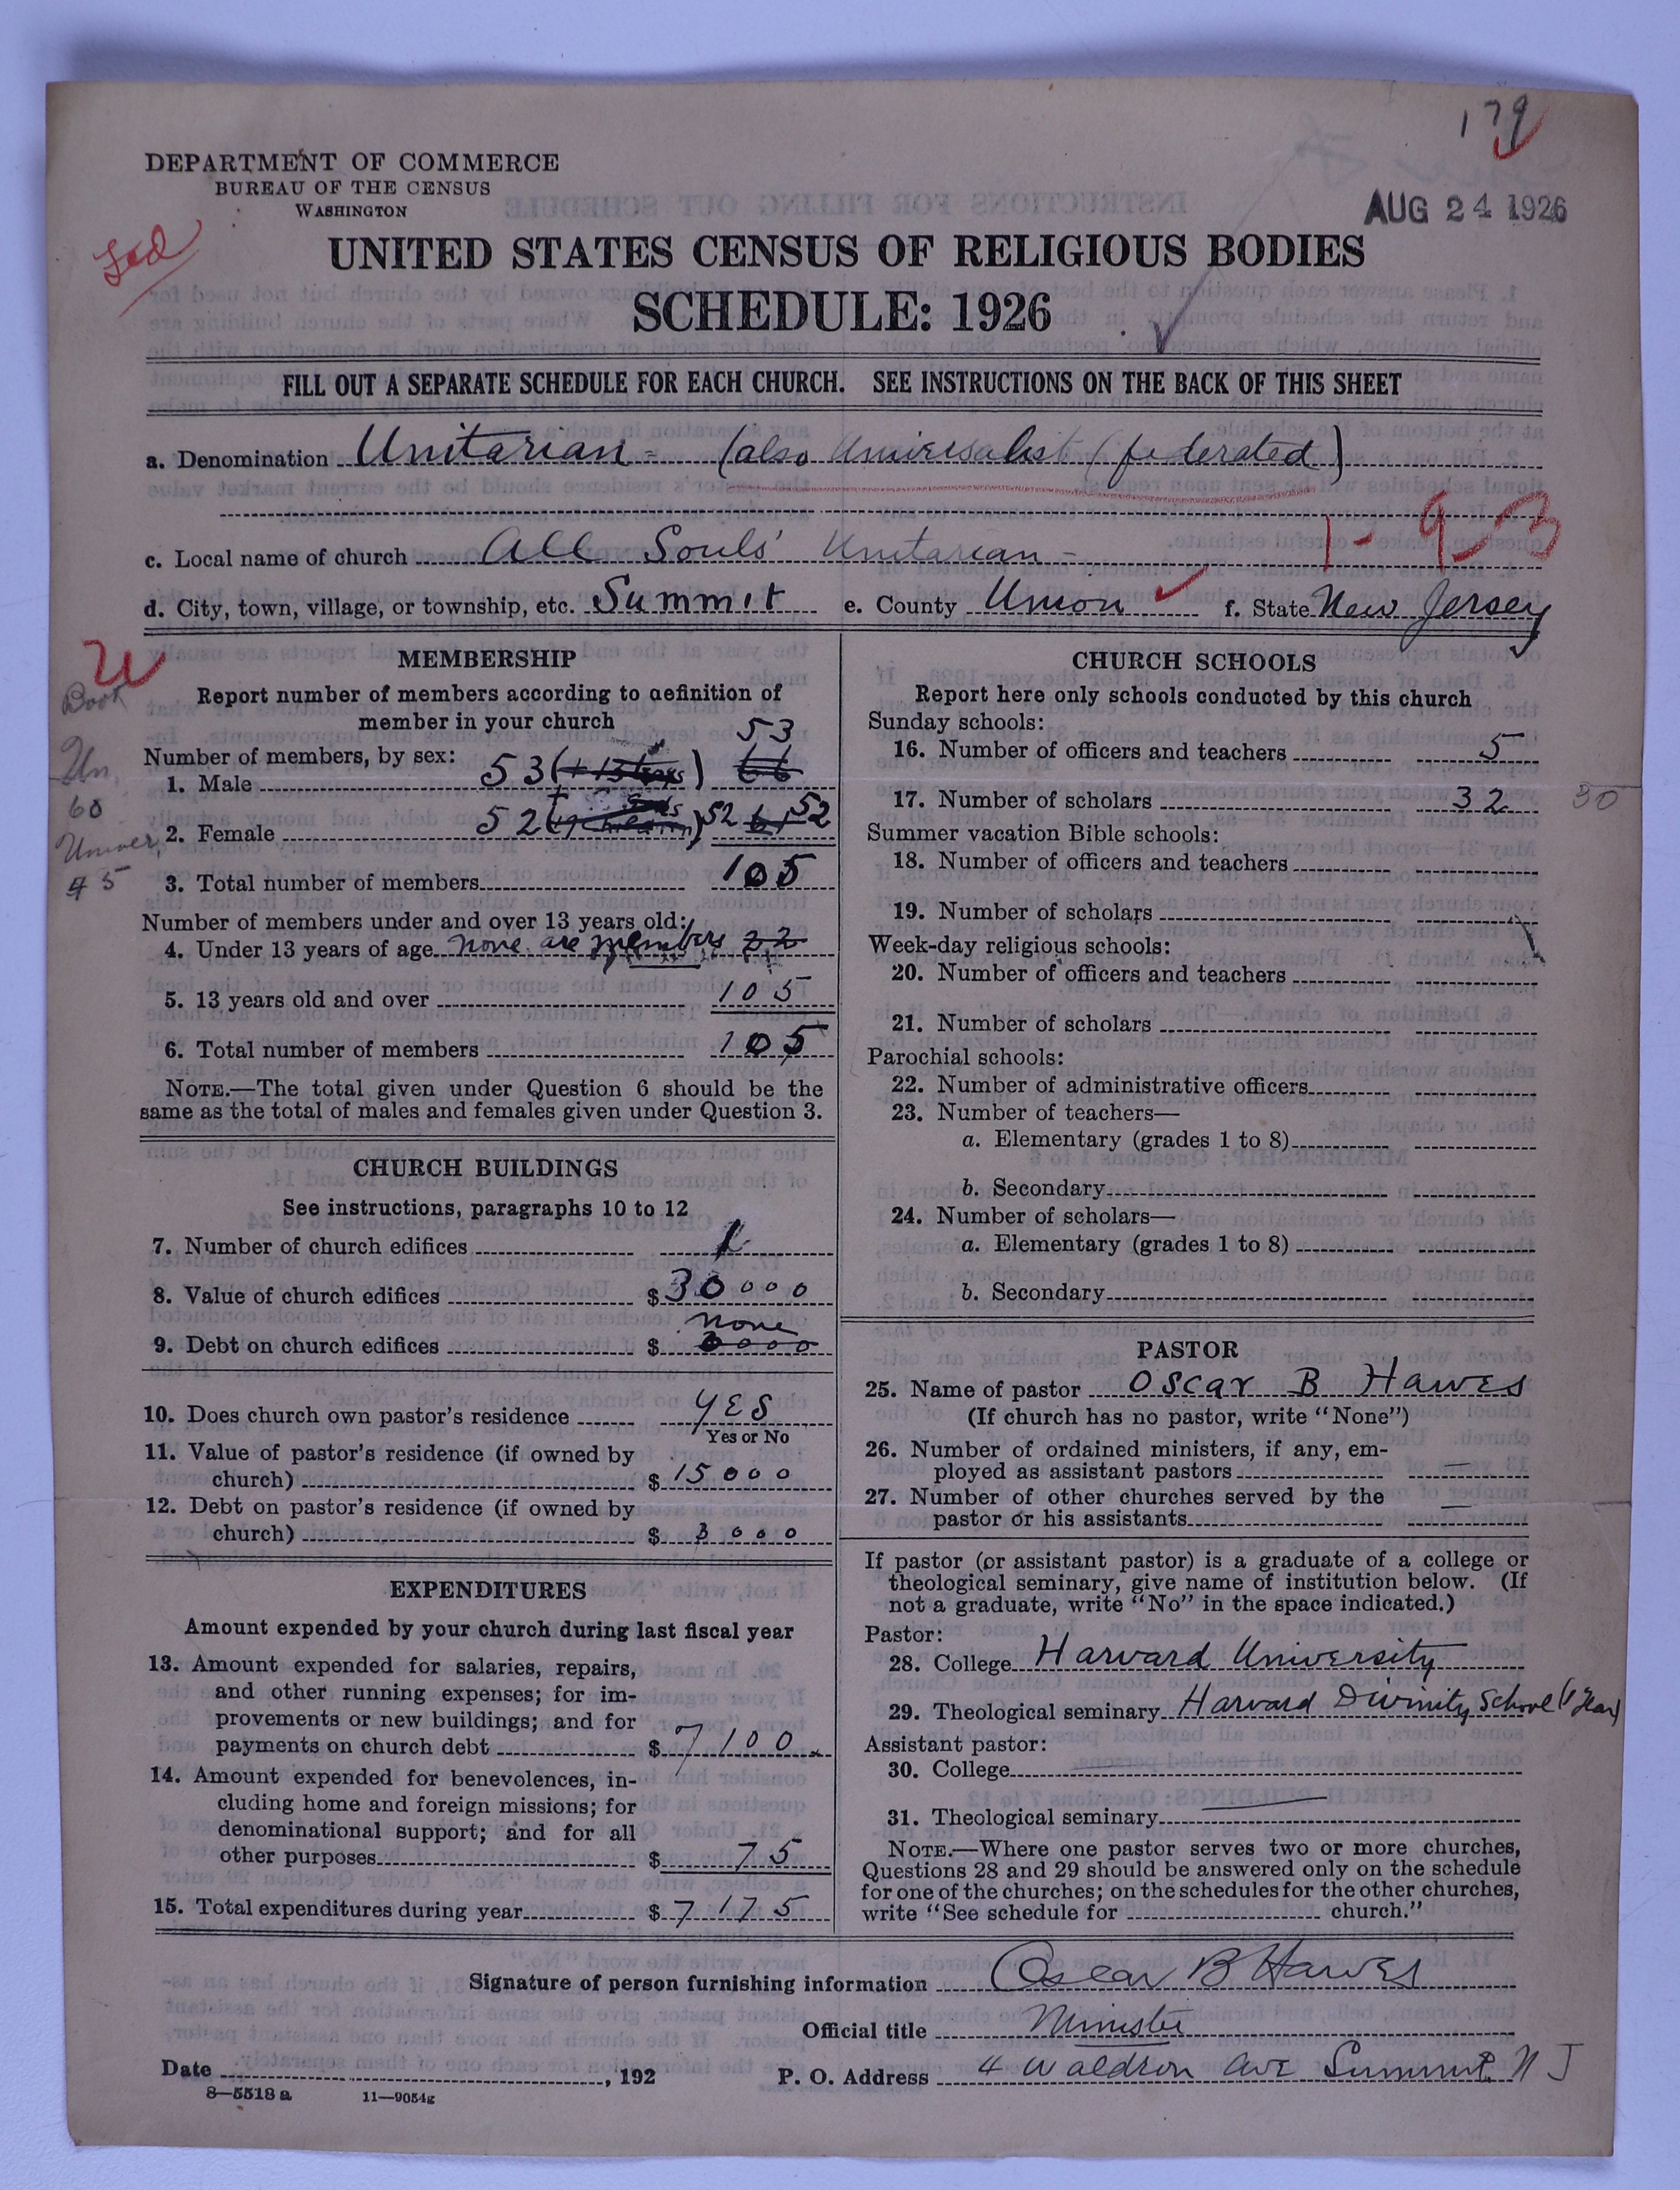 179
DEPARTMENT OF COMMERCE
BUREAU OF THE CENSUS
WASHINGTON
AUG 24 1926
Fed
UNITED STATES CENSUS OF RELIGIOUS BODIES
SCHEDULE: 1926
FILL OUT A SEPARATE SCHEDULE FOR EACH CHURCH. SEE INSTRUCTIONS ON THE BACK OF THIS SHEET
a. Denomination Unitarian - (also Universalist (federated)
1-9-3
c. Local name of church All Souls' Unitarian -
d. City, town, village, or township, etc. Summit e. County Union f. State New Jersey
U
Book
Un.
60
Univer.
45
MEMBERSHIP
Report number of members according to definition of
member in your church
Number of members, by sex:
53
1. Male 53 66
2. Female 52 52 61 52
3. Total number of members 105
Number of members under and over 13 years old:
4. Under 13 years of age none are members 22
5. 13 years old and over 105
6. Total number of members 105
NOTE.—The total given under Question 6 should be the
same as the total of males and females given under Question 3.
CHURCH BUILDINGS
See instructions, paragraphs 10 to 12
7. Number of church edifices 1
8. Value of church edifices $30000
none
9. Debt on church edifices $ 3000
10. Does church own pastor's residence YES
Yes or No
11. Value of pastor's residence (if owned by
church) $15000
12. Debt on pastor's residence (if owned by
church) $ 3000
EXPENDITURES
Amount expended by your church during last fiscal year
13. Amount expended for salaries, repairs,
and other running expenses; for im-
provements or new buildings; and for
payments on church debt $7100
14. Amount expended for benevolences, in-
cluding home and foreign missions; for
denominational support; and for all
other purposes $ 75
15. Total expenditures during year $7175
CHURCH SCHOOLS
Report here only schools conducted by this church
Sunday schools:
16. Number of officers and teachers 5
17. Number of scholars 32 30
Summer vacation Bible schools:
18. Number of officers and teachers
19. Number of scholars
Week-day religious schools:
20. Number of officers and teachers
21. Number of scholars
Parochial schools:
22. Number of administrative officers
23. Number of teachers—
a. Elementary (grades 1 to 8)
b. Secondary
24. Number of scholars—
a. Elementary (grades 1 to 8)
b. Secondary
PASTOR
25. Name of pastor Oscar B Hawes
(If church has no pastor, write "None")
26. Number of ordained ministers, if any, em-
ployed as assistant pastors —
27. Number of other churches served by the
pastor or his assistants —
If pastor (or assistant pastor) is a graduate of a college or
theological seminary, give name of institution below. (If
not a graduate, write "No" in the space indicated.)
Pastor:
28. College Harvard University
29. Theological seminary Harvard Divinity School (1 year)
Assistant pastor:
30. College
31. Theological seminary
NOTE.—Where one pastor serves two or more churches,
Questions 28 and 29 should be answered only on the schedule
for one of the churches; on the schedules for the other churches,
write "See schedule for church."
Signature of person furnishing information Oscar B Hawes
Official title Minister
Date , 192 P. O. Address 4 Waldron Ave Summit, N J
8—5518 a 11—9054g